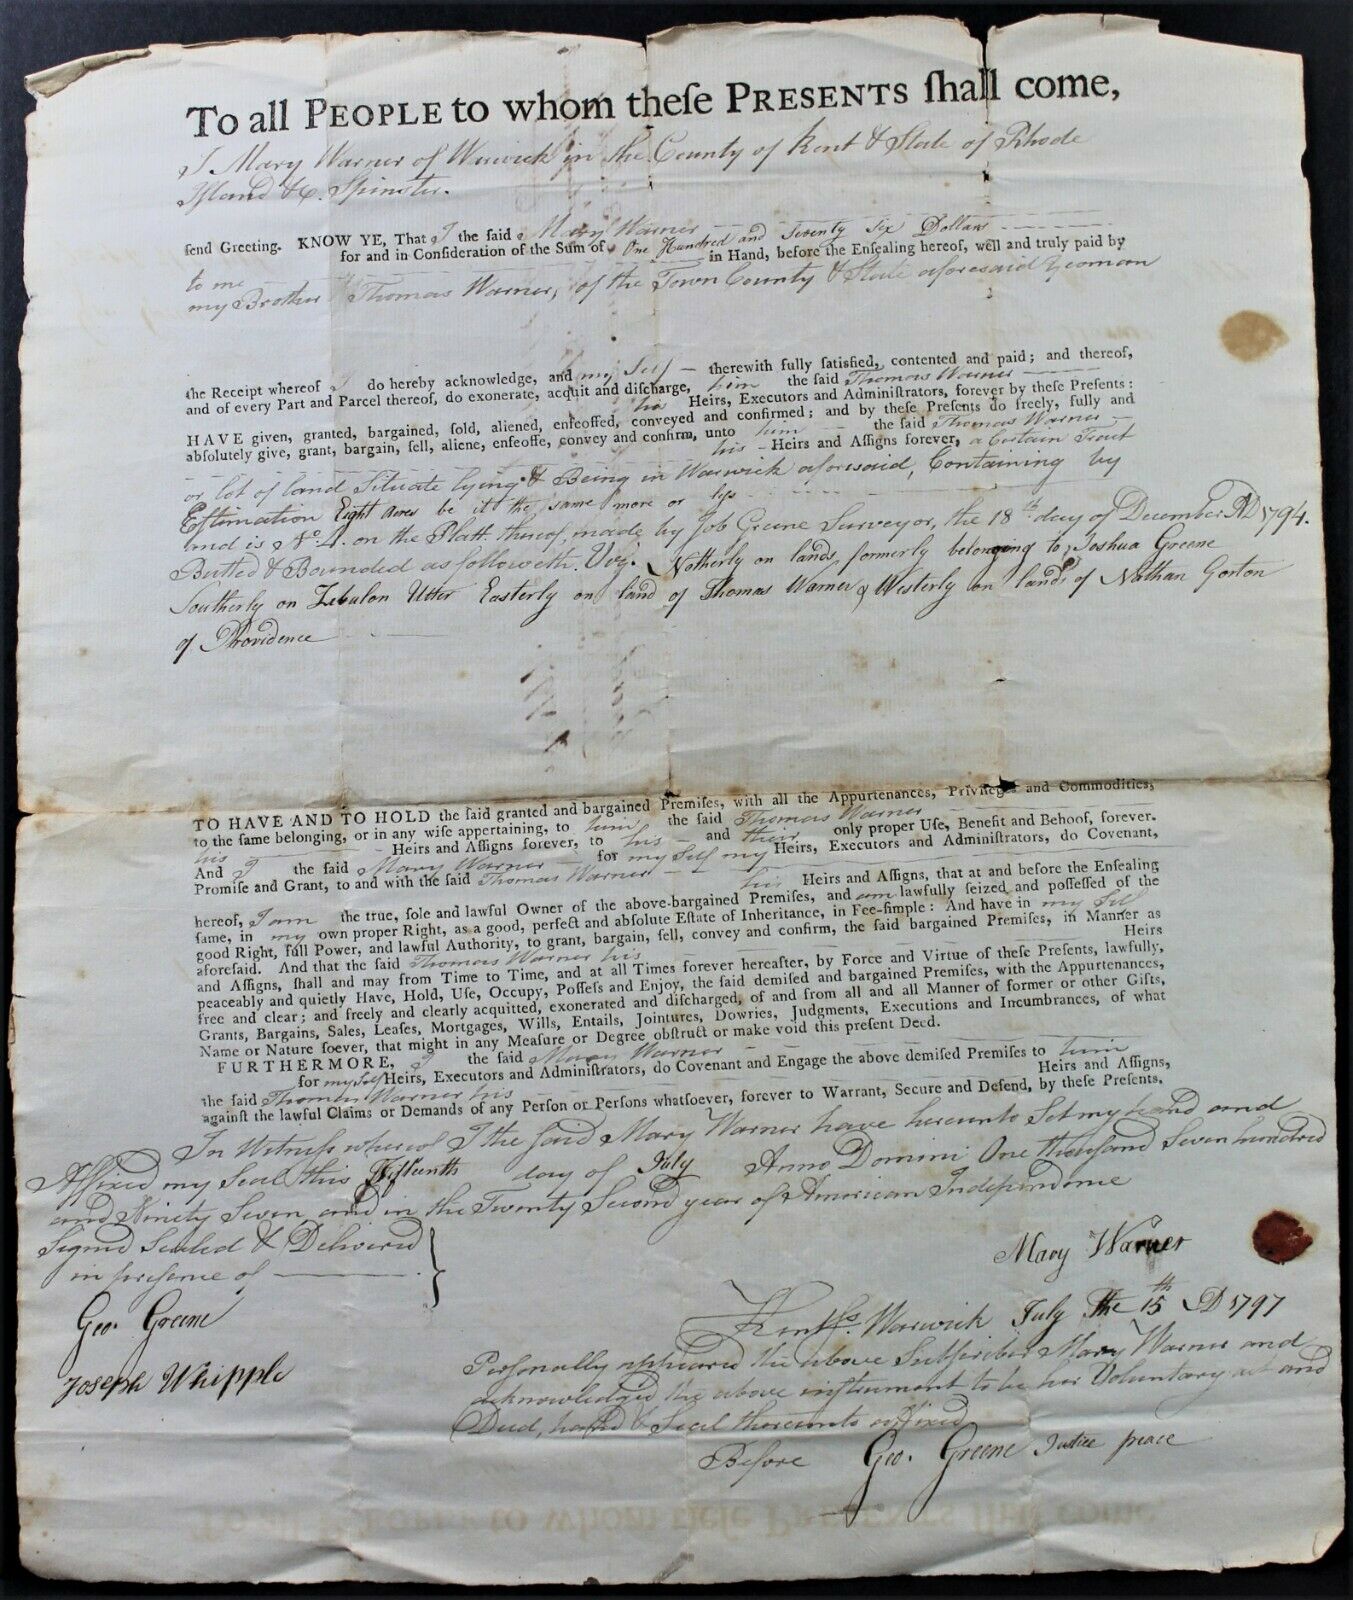 To all PEOPLE to whom theſe PRESENTS ſhall come,
I Mary Warner of Warwick in the County of Kent & State of Rhode
Iſland &c. Spinster.
ſend Greeting. KNOW YE, That I the ſaid Mary Warner
for and in Conſideration of the Sum of One Hundred and Seventy Six Dollars
to me in Hand, before the Enſealing hereof, well and truly paid by
my Brother Thomas Warner, of the Town County & State aforesaid Yeoman
the Receipt whereof I do hereby acknowledge, and my Self therewith fully ſatisfied, contented and paid; and thereof,
and of every Part and Parcel thereof, do exonerate, acquit and diſcharge, him the ſaid Thomas Warner
his Heirs, Executors and Adminiſtrators, forever by theſe Preſents:
HAVE given, granted, bargained, ſold, aliened, enfeoffed, conveyed and confirmed; and by theſe Preſents do freely, fully and
abſolutely give, grant, bargain, ſell, aliene, enfeoffe, convey and confirm, unto him the ſaid Thomas Warner
his Heirs and Aſſigns forever, a Certain Tract
or lot of land Situate lying & Being in Warwick aforesaid, Containing by
Eſtimation Eight Acres be it the same more or leſs
and is No. 4. on the Platt thereof, made by Job Greene Surveyor, the 18th day of December AD 1794.
Butted & Bounded as followeth. Viz. Notherly on lands formerly belonging to Joshua Greene
Southerly on Zebulon Utter Easterly on land of Thomas Warner & Westerly on lands of Nathan Gorton
of Providence
TO HAVE AND TO HOLD the ſaid granted and bargained Premiſes, with all the Appurtenances, Privileges and Commodities,
to the ſame belonging, or in any wiſe appertaining, to him the ſaid Thomas Warner
his Heirs and Aſſigns forever, to his and their only proper Uſe, Benefit and Behoof, forever.
And I the ſaid Mary Warner for my Self my Heirs, Executors and Adminiſtrators, do Covenant,
Promiſe and Grant, to and with the ſaid Thomas Warner
his Heirs and Aſſigns, that at and before the Enſealing
hereof, I am the true, ſole and lawful Owner of the above-bargained Premiſes, and am lawfully ſeized and poſſeſſed of the
ſame, in my own proper Right, as a good, perfect and abſolute Eſtate of Inheritance, in Fee-ſimple: And have in my Self
good Right, full Power, and lawful Authority, to grant, bargain, ſell, convey and confirm, the ſaid bargained Premiſes, in Manner as
aforeſaid. And that the ſaid Thomas Warner his Heirs
and Aſſigns, ſhall and may from Time to Time, and at all Times forever hereafter, by Force and Virtue of theſe Preſents, lawfully,
peaceably and quietly Have, Hold, Uſe, Occupy, Poſſeſs and Enjoy, the ſaid demiſed and bargained Premiſes, with the Appurtenances,
free and clear; and freely and clearly acquitted, exonerated and diſcharged, of and from all and all Manner of former or other Gifts,
Grants, Bargains, Sales, Leaſes, Mortgages, Wills, Entails, Jointures, Dowries, Judgments, Executions and Incumbrances, of what
Name or Nature ſoever, that might in any Meaſure or Degree obſtruct or make void this preſent Deed.
FURTHERMORE, I the ſaid Mary Warner
for my Self Heirs, Executors and Adminiſtrators, do Covenant and Engage the above demiſed Premiſes to him
the ſaid Thomas Warner his Heirs and Aſſigns,
againſt the lawful Claims or Demands of any Perſon or Perſons whatſoever, forever to Warrant, Secure and Defend, by theſe Preſents.
In Witneſs whereof I the Said Mary Warner have hereunto Set my hand and
Affixed my Seal this Fifteenth day of July Anno Domini One thousand Seven hundred
and Ninety Seven and in the Twenty Second year of American Independence
Signed Sealed & Delivered
in presence of
Mary Warner
Geo. Greene
Joseph Whipple
Kent Ss. Warwick July the 15th AD 1797
Personally appeared the above Subscriber Mary Warner and
acknowledged the above instrument to be her Voluntary act and
Deed, hand & Seal thereunto affixed
Before Geo. Greene Justice peace